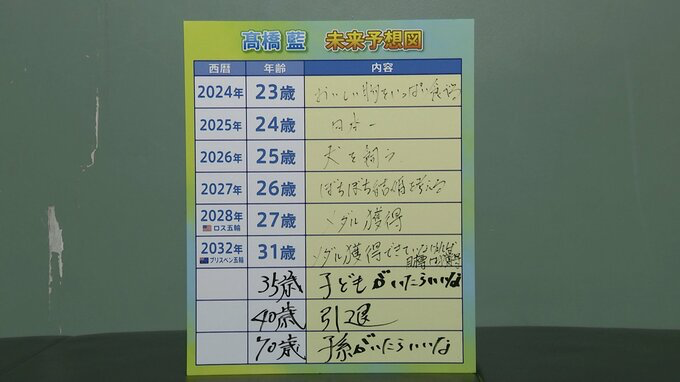 髙橋 藍 未来予想図
西暦 年齢 内容
2024年 23歳 おいしい肉をいっぱい食べる
2025年 24歳 日本一
2026年 25歳 犬を飼う
2027年 26歳 ぼちぼち結婚を考える
2028年 ロス五輪 27歳 メダル獲得
2032年 ブリスベン五輪 31歳 メダル獲得できていなければ
目標
35歳 子どもがいたらいいな
40歳 引退
70歳 子孫がいたらいいな